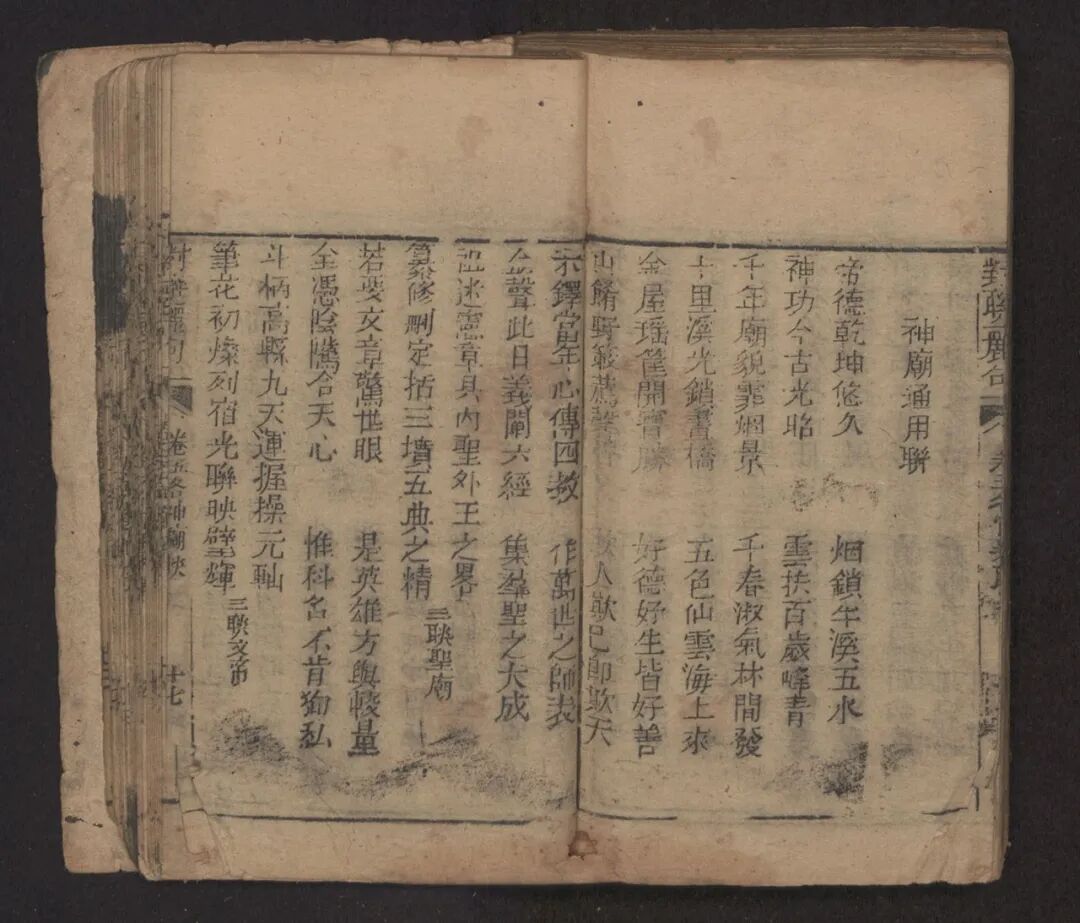 對聯麗句
神廟通用聯
帝德乾坤悠久 烟鎖半溪五水
神功今古光昭 雲扶百歲峰青
千年廟貌霏烟景 千春淑氣林間發
十里溪光鎖書橋 五色仙雲海上來
金屋瑶筐開寶勝 好德好生皆好善
山餚野蔌薦 欺人欺己即欺天
木鐸當年心傳四教 作萬世之師表
金聲此日義闡六經 集羣聖之大成
祖述憲章具內聖外王之畧
纂修删定括三墳五典之精 三聨聖廟
若斐文章驚世眼 是英雄方與較量
全憑陰隲合天心 惟科名不肯狥私
斗柄高縣九天運握操元軕
筆花初燦列宿光聯映壁輝 三聨文帝
對聯麗句 卷五各神廟聨 十七